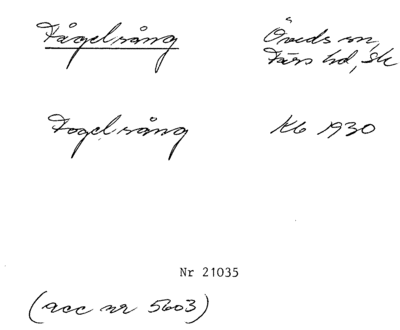 Fågelsång Öveds sn,
Färs hd, Sk
Fogelsång Kb 1930
Nr 21035
(acc nr 5603)